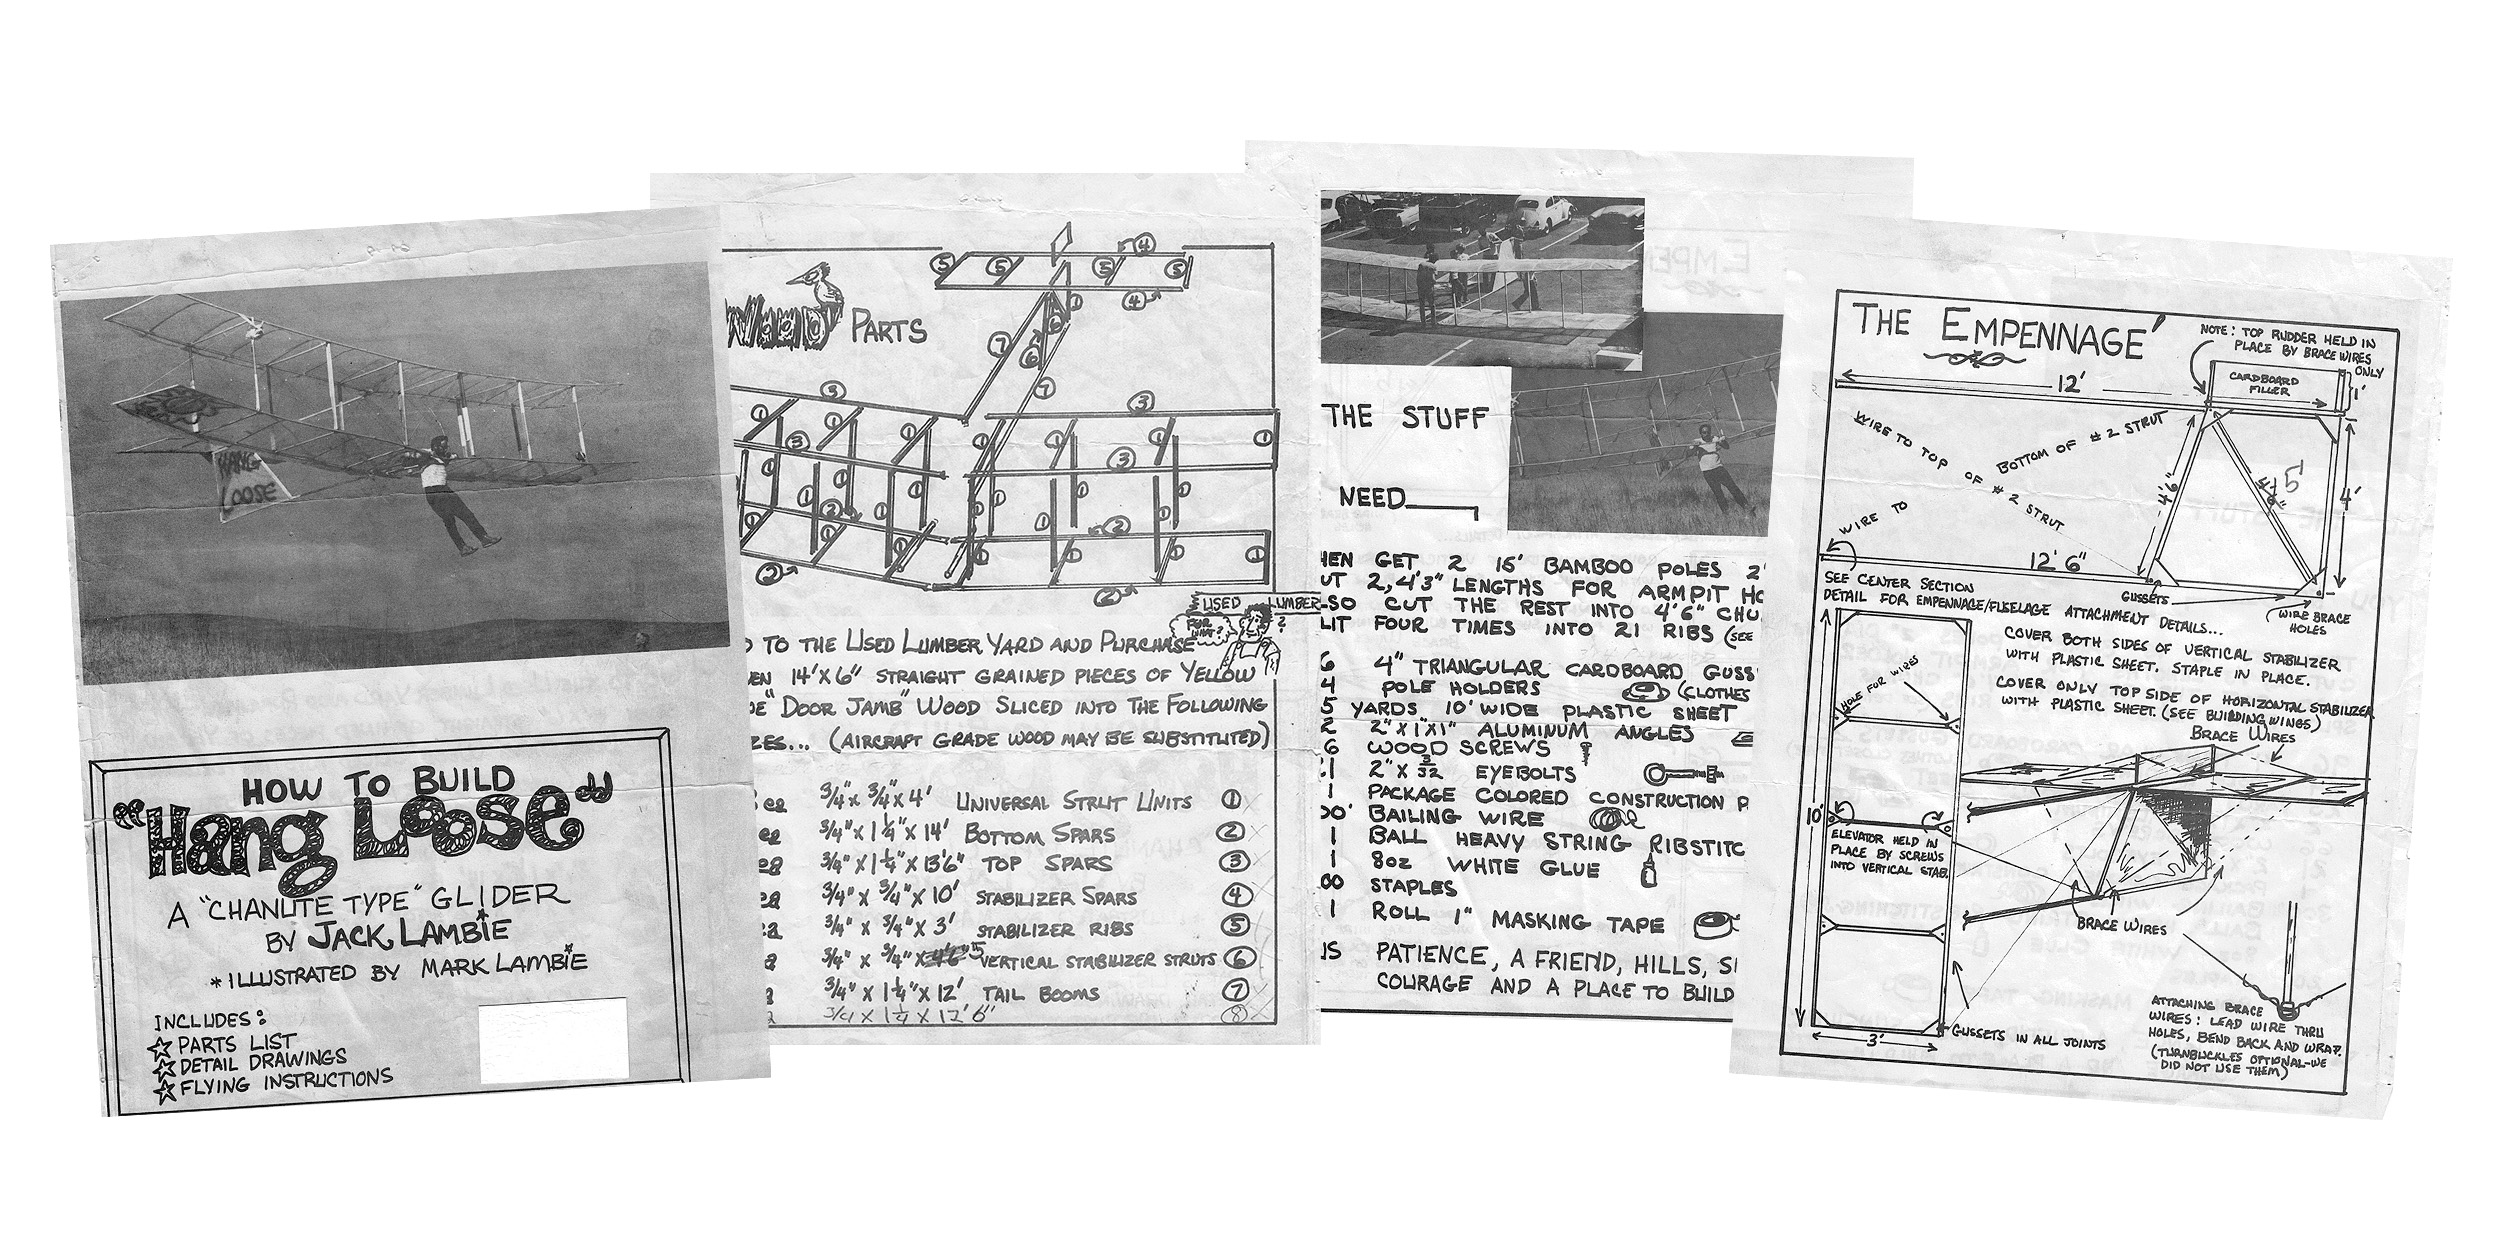 HANG
LOOSE
HOW TO BUILD
"Hang Loose"
A "CHANUTE TYPE" GLIDER
BY JACK LAMBIE
*ILLUSTRATED BY MARK LAMBIE
INCLUDES:
PARTS LIST
DETAIL DRAWINGS
FLYING INSTRUCTIONS
WOOD PARTS
4
5 5 5 5
4
1
6
7
6
7
3 3
1 1 1 1 1 1
3 3
1 1 1 1 1 1 1
2 2
1 1 1 1 1
2 2
USED LUMBER
FOR WHAT?
?
O TO THE USED LUMBER YARD AND PURCHASE
EN 14'X6" STRAIGHT GRAINED PIECES OF YELLOW
E "DOOR JAMB" WOOD SLICED INTO THE FOLLOWING
ZES... (AIRCRAFT GRADE WOOD MAY BE SUBSTITUTED)
ea 3/4" X 3/4" X 4' UNIVERSAL STRUT UNITS 1
ea 3/4" X 1 1/4" X 14' BOTTOM SPARS 2
ea 3/4" X 1 1/4" X 13'6" TOP SPARS 3
ea 3/4" X 3/4" X 10' STABILIZER SPARS 4
a 3/4" X 3/4" X 3' STABILIZER RIBS 5
a 3/4" X 3/4" X 4'6" 5 VERTICAL STABILIZER STRUTS 6
a 3/4" X 1 1/4" X 12' TAIL BOOMS 7
3/4 X 1 1/4 X 12'6" 8
THE STUFF
NEED
HEN GET 2 15' BAMBOO POLES 2'
UT 2, 4'3" LENGTHS FOR ARMPIT HO
LSO CUT THE REST INTO 4'6" CHU
LIT FOUR TIMES INTO 21 RIBS (SEE
6 4" TRIANGULAR CARDBOARD GUSS
4 POLE HOLDERS (CLOTHES
5 YARDS 10' WIDE PLASTIC SHEET
2 2"X1"X1" ALUMINUM ANGLES
6 WOOD SCREWS
1 2" X 3/32 EYEBOLTS
1 PACKAGE COLORED CONSTRUCTION P
00' BAILING WIRE
1 BALL HEAVY STRING RIBSTITC
1 8oz WHITE GLUE
00 STAPLES
1 ROLL 1" MASKING TAPE
US PATIENCE, A FRIEND, HILLS, S
COURAGE AND A PLACE TO BUILD
THE EMPENNAGE'
NOTE: TOP RUDDER HELD IN
PLACE BY BRACE WIRES
ONLY
12'
CARDBOARD
FILLER
1'
WIRE TO TOP OF #2 STRUT
WIRE TO BOTTOM OF #2 STRUT
4'6"
4'6"
5'
4'
12'6"
SEE CENTER SECTION
DETAIL FOR EMPENNAGE/FUSELAGE ATTACHMENT DETAILS...
GUSSETS
(WIRE BRACE
HOLES
COVER BOTH SIDES OF VERTICAL STABILIZER
WITH PLASTIC SHEET. STAPLE IN PLACE.
COVER ONLY TOP SIDE OF HORIZONTAL STABILIZER
WITH PLASTIC SHEET. (SEE BUILDING WINGS)
HOLE FOR WIRES
BRACE WIRES
10'
ELEVATOR HELD IN
PLACE BY SCREWS
INTO VERTICAL STAB.
BRACE WIRES
GUSSETS IN ALL JOINTS
3'
ATTACHING BRACE
WIRES: LEAD WIRE THRU
HOLES, BEND BACK AND WRAP.
(TURNBUCKLES OPTIONAL-WE
DID NOT USE THEM)